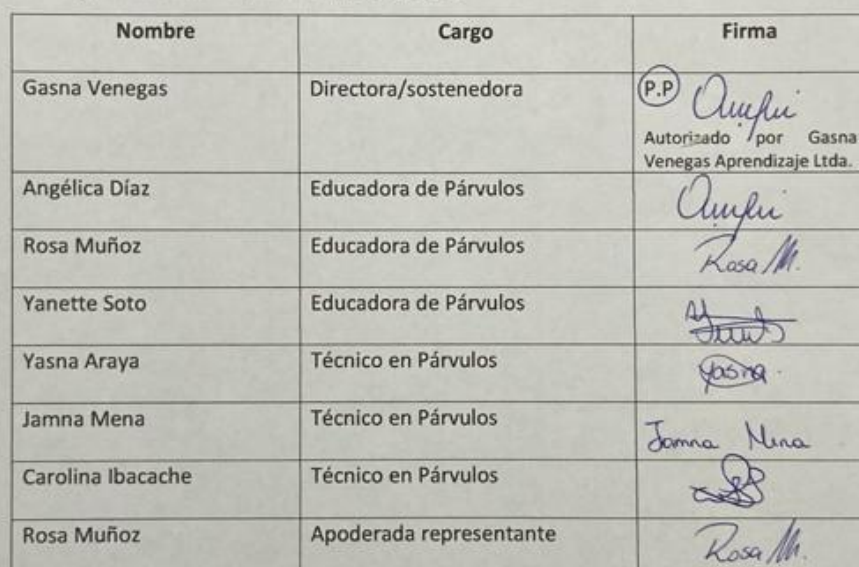 Nombre Cargo Firma
Gasna Venegas Directora/sostenedora P.P
Autorizado por Gasna
Venegas Aprendizaje Ltda.
Angélica Díaz Educadora de Párvulos
Rosa Muñoz Educadora de Párvulos Rosa M.
Yanette Soto Educadora de Párvulos
Yasna Araya Técnico en Párvulos Yasna
Jamna Mena Técnico en Párvulos Jamna Mena
Carolina Ibacache Técnico en Párvulos
Rosa Muñoz Apoderada representante Rosa M.